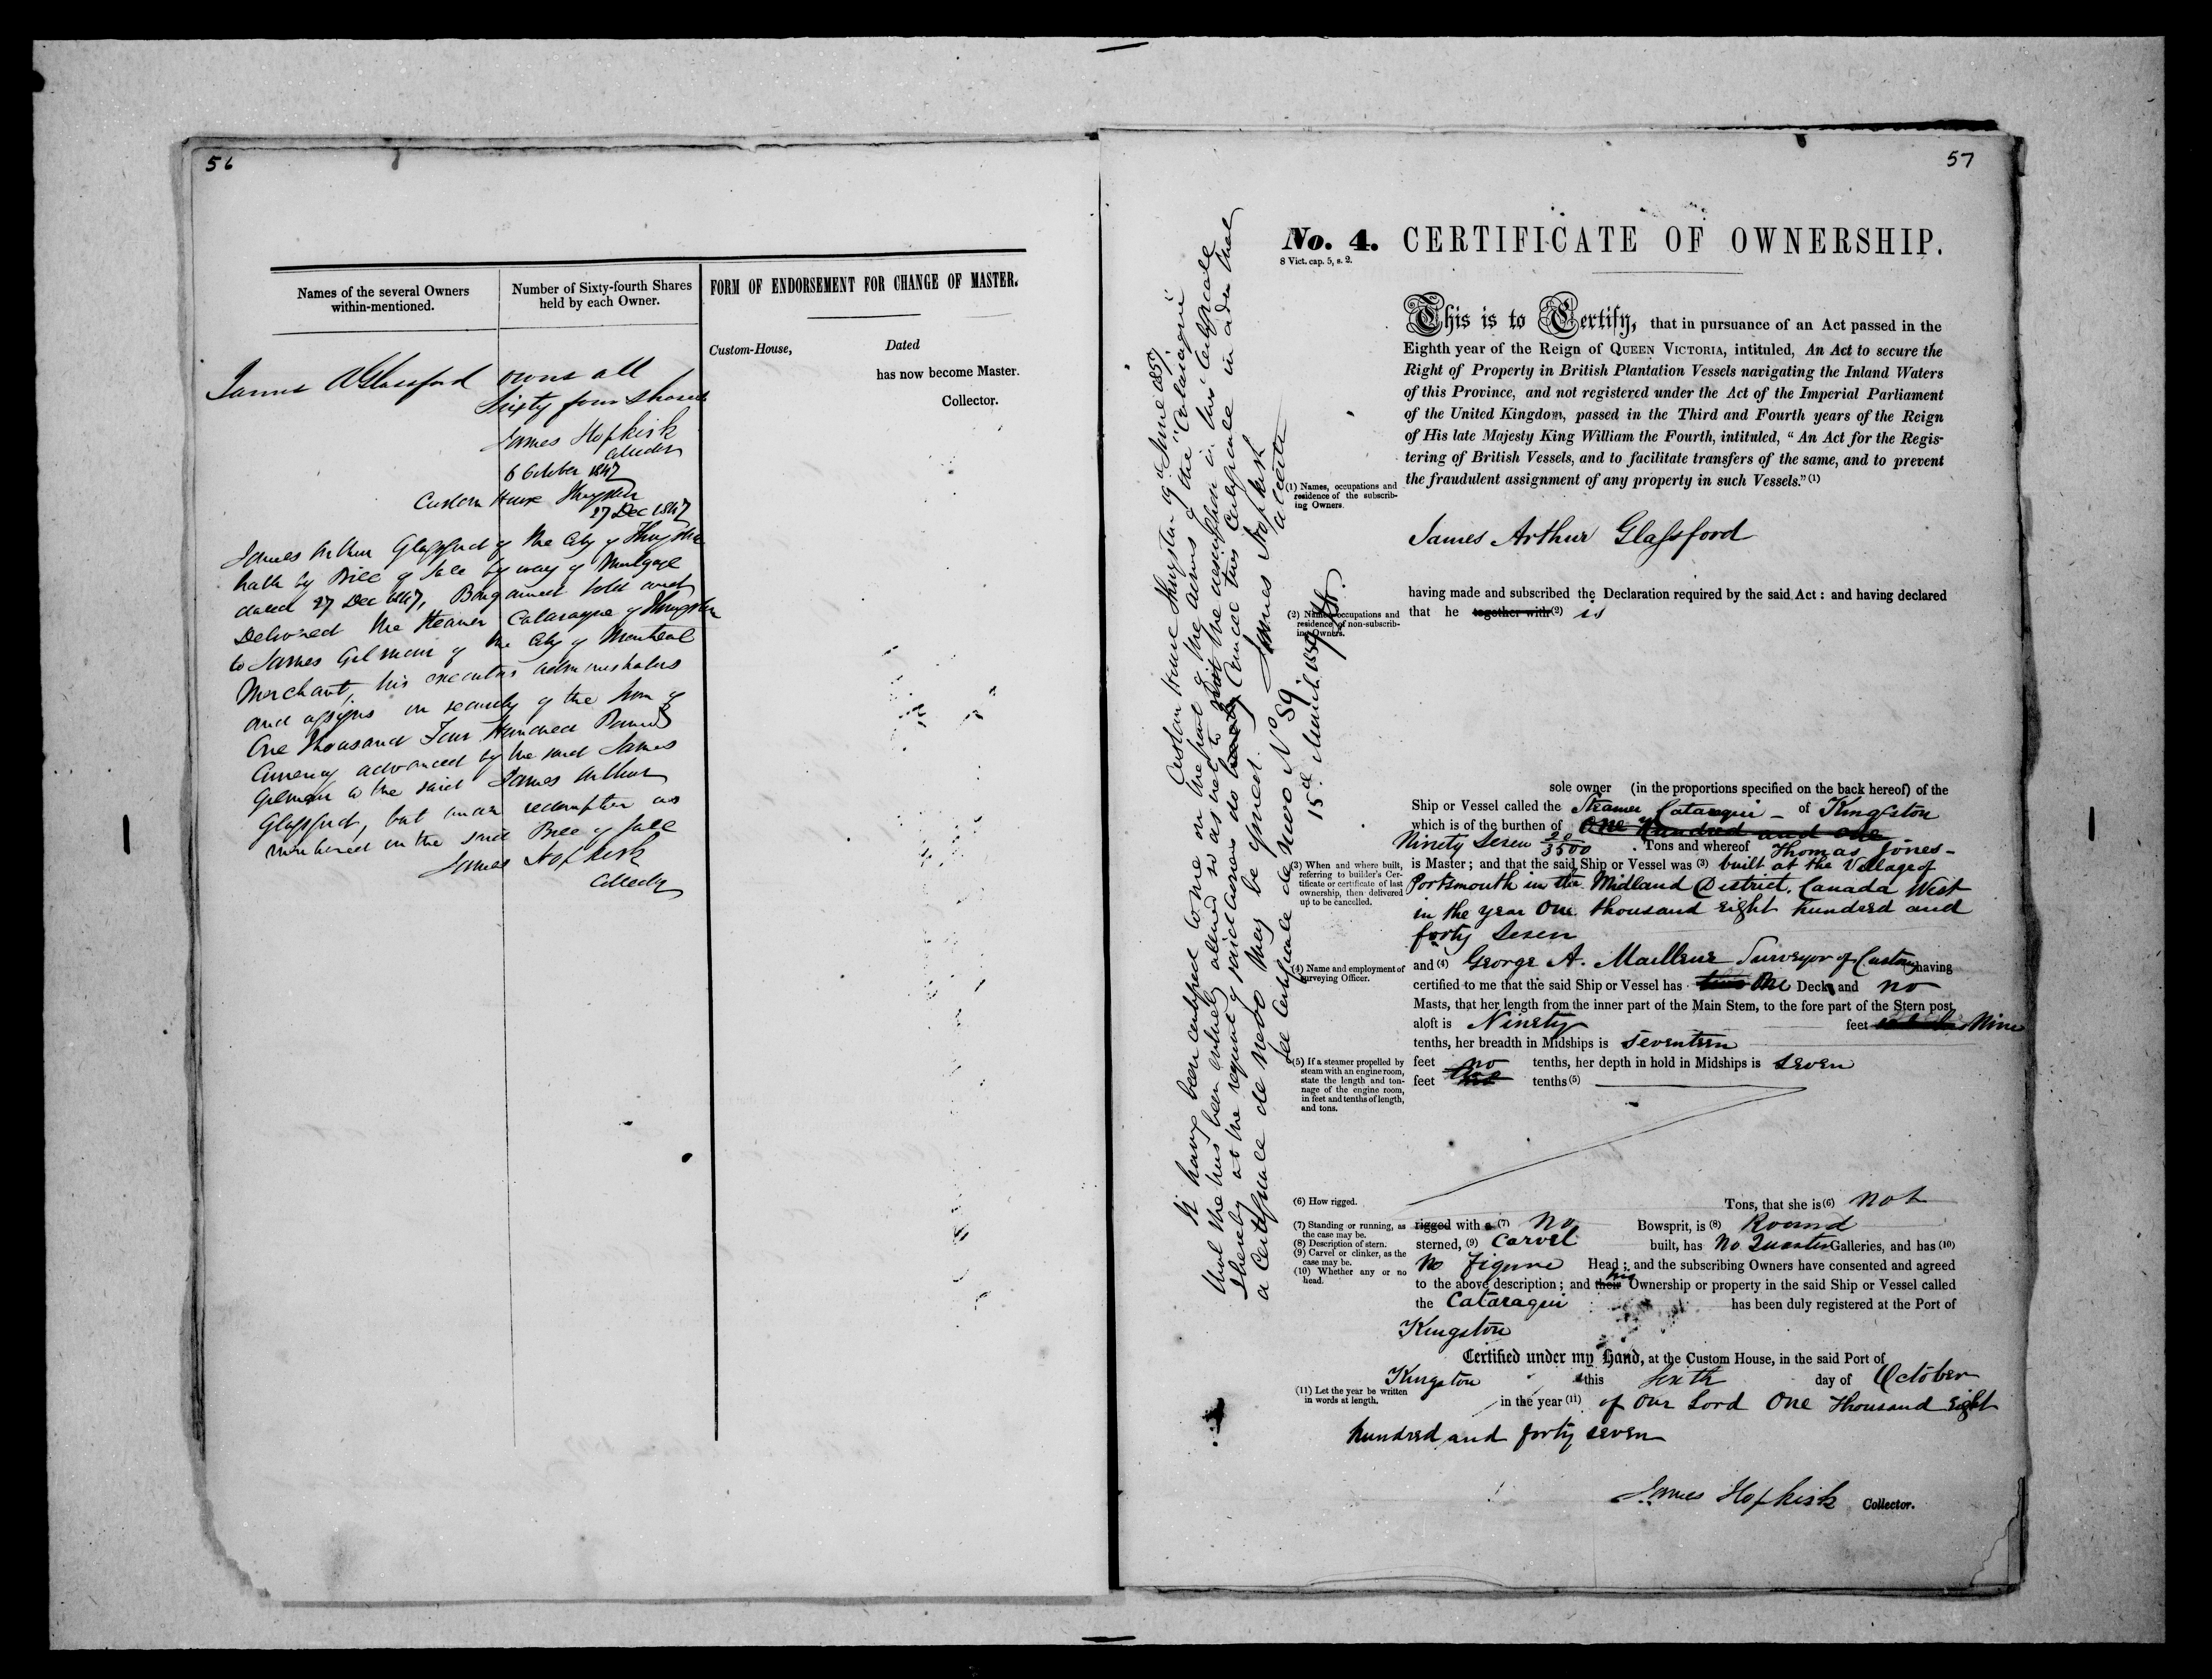 56
Names of the several Owners
within-mentioned.
Number of Sixty-fourth Shares
held by each Owner.
FORM OF ENDORSEMENT FOR CHANGE OF MASTER.
Custom-House,
Dated
has now become Master.
Collector.
James A Glassford owns all
Sixty four Shares
James Hopkirk
Collector
6 October 1847
Custom House Kingston
27 Dec 1847
James Arthur Glassford of the City of Kingston
hath by Bill of Sale by way of Mortgage
dated 27 Dec 1847, Bargained Sold and
Delivered the Steamer Cataraqui of Kingston
to James Gilmour of the City of Montreal
Merchant, his executors administrators
and assigns in security of the sum of
One thousand Four Hundred Pounds
Currency advanced by the said James
Gilmour to the said James Arthur
Glassford, but under redemption as
mentioned in the said Bill of Sale
James Hopkirk
Collector
57
No. 4. CERTIFICATE OF OWNERSHIP.
8 Vict. cap. 5, s. 2.
This is to Certify, that in pursuance of an Act passed in the
Eighth year of the Reign of QUEEN VICTORIA, intituled, An Act to secure the
Right of Property in British Plantation Vessels navigating the Inland Waters
of this Province, and not registered under the Act of the Imperial Parliament
of the United Kingdom, passed in the Third and Fourth years of the Reign
of His late Majesty King William the Fourth, intituled, "An Act for the Regis-
tering of British Vessels, and to facilitate transfers of the same, and to prevent
the fraudulent assignment of any property in such Vessels." (1)
(1) Names, occupations and
residence of the subscrib-
ing Owners.
James Arthur Glassford
having made and subscribed the Declaration required by the said Act: and having declared
that he together with (2) is
(2) Names, occupations and
residence of non-subscrib-
ing Owners.
sole owner (in the proportions specified on the back hereof) of the
Ship or Vessel called the Steamer Cataraqui of Kingston
which is of the burthen of One Hundred and one
Ninety Seven 20/3500 Tons and whereof Thomas Jones
is Master; and that the said Ship or Vessel was (3) built at the Village of
Portsmouth in the Midland District, Canada West
in the year One thousand eight hundred and
forty Seven
(3) When and where built,
referring to builder's Cer-
tificate or certificate of last
ownership, then delivered
up to be cancelled.
(4) Name and employment of
surveying Officer.
and (4) George A. Surveyor of Customs having
certified to me that the said Ship or Vessel has two One Deck and no
Masts, that her length from the inner part of the Main Stem, to the fore part of the Stern post
aloft is Ninety feet Nine
tenths, her breadth in Midships is seventeen
feet no tenths, her depth in hold in Midships is seven
feet tenths (5)
(5) If a steamer propelled by
steam with an engine room,
state the length and ton-
nage of the engine room,
in feet and tenths of length,
and tons.
(6) How rigged.
Tons, that she is (6) not
rigged with a (7) No Bowsprit, is (8) Round
sterned, (9) Carvel built, has No Quarter Galleries, and has (10)
No Figure Head; and the subscribing Owners have consented and agreed
to the above description; and their his Ownership or property in the said Ship or Vessel called
the Cataraqui has been duly registered at the Port of
Kingston
(7) Standing or running, as
the case may be.
(8) Description of stern.
(9) Carvel or clinker, as the
case may be.
(10) Whether any or no
head.
Certified under my Hand, at the Custom House, in the said Port of
Kingston this Sixth day of October
in the year (11) of Our Lord One Thousand Eight
hundred and forty seven
(11) Let the year be written
in words at length.
James Hopkirk Collector.
Custom House Kingston 19th June 1857.
It having been certified to me on the part of the owners of the "Cataraqui"
that she has been entirely altered so as not to suit the description in this Certificate
I hereby at the request of said owners do Cancel this Certificate in order that
a Certificate de Novo may be issued. James Hopkirk
Collector
See Certificate de Novo No 59.